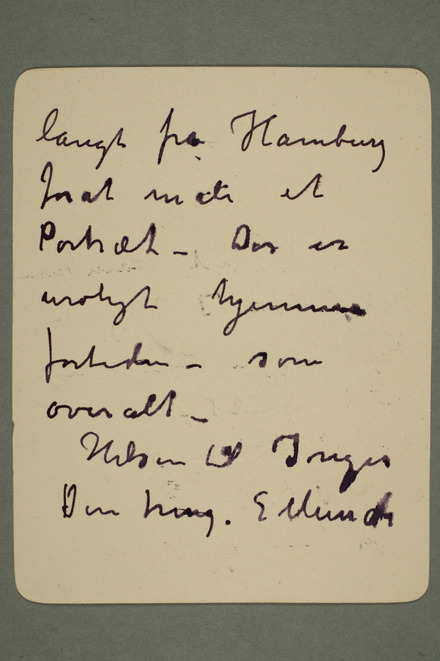 langt fra Hamburg
forat male et
Portræt – Der er
uroligt hjemme
fortiden – som
overalt –
Hilsen til Inger
Din heng. E Munch